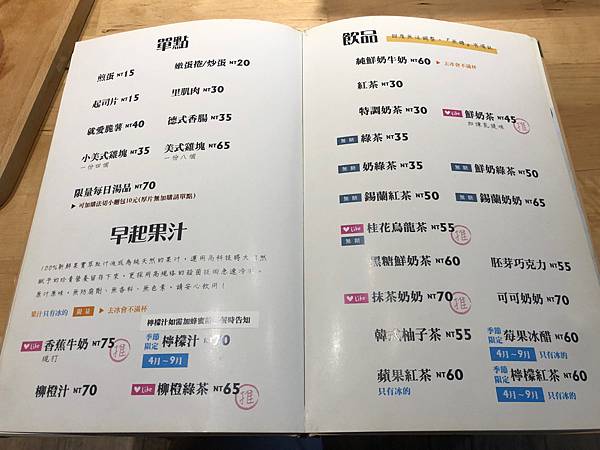 單點
煎蛋 NT15
嫩蛋捲/炒蛋 NT20
起司片 NT15
里肌肉 NT30
就愛脆薯 NT40
德式香腸 NT35
小美式雞塊 NT35
一份四塊
美式雞塊 NT65
一份八塊
限量每日湯品 NT70
▶ 可加購法切小麵包10元(厚片無加購請單點)
早起果汁
100%新鮮果實萃取汁液成為純天然的果汁，運用高科技將大自然
賦予的珍貴營養留存下來，更採用高規格的殺菌技術急速冷
果汁原味，無防腐劑、無香料、無色素，請安心飲用！
果汁只有冰的 限量 ▶ 去冰會不滿杯
檸檬汁如需加蜂蜜 時告知
Like 香蕉牛奶 NT75 推
現打
季節限定 檸檬汁 NT70
4月～9月
柳橙汁 NT70
Like 柳橙綠茶 NT65 推
飲品
甜度無法調整
純鮮奶牛奶 NT60 ▶ 去冰會不滿杯
紅茶 NT30
特調奶茶 NT30
Like 鮮奶茶 NT45 推
無糖 綠茶 NT35
奶綠茶 NT35
無糖 鮮奶綠茶 NT50
無糖 錫蘭紅茶 NT50
無糖 錫蘭奶奶 NT65
Like 桂花烏龍茶 NT55 推
無糖
黑糖鮮奶茶 NT60
胚芽巧克力 NT55
Like 抹茶奶奶 NT70 推
可可奶奶 NT70
韓式柚子茶 NT55
季節限定 莓果冰醋 NT60
4月～9月 只有冰的
蘋果紅茶 NT60
只有冰的
季節限定 檸檬紅茶 NT60
4月～9月 只有冰的